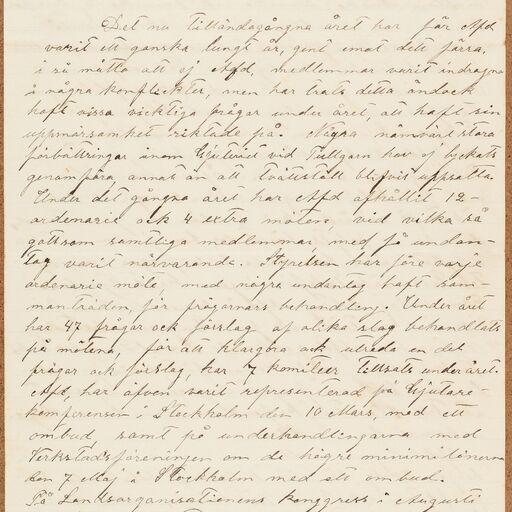 Det nu tilländagångna året har för Afd
varit ett ganska lungt år, gent emot dett förra,
i så måtto att ej Afd, medlemmar varit indragna
i några konflickter, men har trots detta ändock
haft vissa vicktiga frågar under året, att haft sin
uppmärsamhet riktade på. Några nämvärt stora
förbättringar inom Gjuteriet vid Tullgarn hav ej lyckats
genomföra annat än att tvättställ blifvit uppsatta.
Under det gångna året har Afd afhållit 12-
ordenarie ock 4 extra möten, vid vilka så
gottsom samtliga medlemmar, med få undan-
tag varit närvarande. Styrelsen har före varje
ordenarie möte, med några undantag haft sam-
manträden, för frågornas behandling. Under året
har 47 frågor ock förslag af olika slag behandlats
på mötena, för att klargöra ock utreda en del
frågor ock förslag, har 7 komitéer tillsats under året.
Afd, har äfven varit representerad på Gjutare-
konferensen i Stockholm den 10 Mars, med ett
ombud, samt på underhandlingarna med
Verkstadsföreningen om de högre minimilönerna
den 7 Maj i Stockholm med ett ombud.
På Landsorganisationens konggress i Augusti